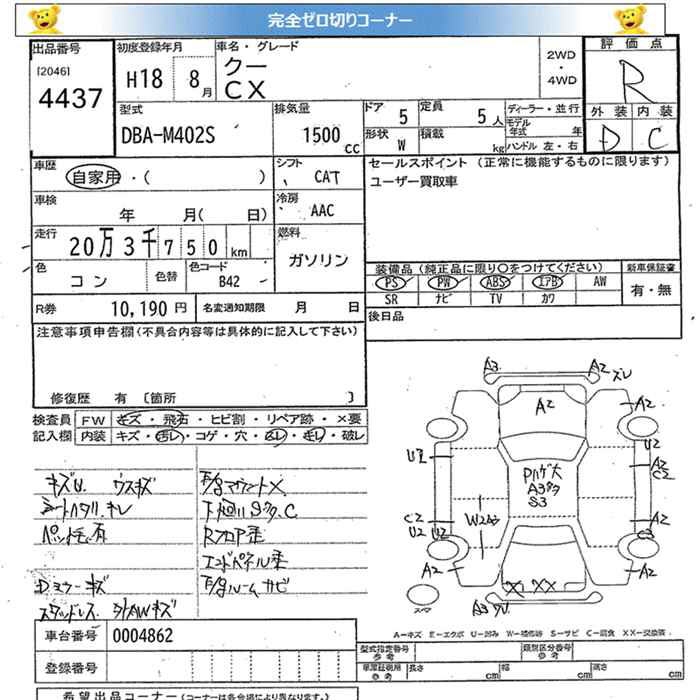 完全ゼロ切りコーナー
出品番号 初度登録年月 車名・グレード 2WD・4WD 評価点
[2046]
4437
H18 8月
クー
CX
R
型式 排気量 ドア 5 定員 5人 ディーラー・並行 外装 内装
DBA-M402S 1500cc 形状 W 積載 kg モデル年式 年 D C
ハンドル 左・右
車歴 シフト セールスポイント (正常に機能するものに限ります)
自家用・( ) CAT ユーザー買取車
車検 冷房
年 月( 日) AAC
走行 燃料
20万3千750km ガソリン
色 色替 色コード 装備品 (純正品に限り○をつけてください) 新車保証書
コン B42 PS PW ABS エアB AW 有・無
SR ナビ TV カワ
R券 10,190円 名変通知期限 月 日 後日品
注意事項申告欄(不具合内容等は具体的に記入して下さい)
修復歴 有 〔箇所 〕
検査員 FW キズ・飛石・ヒビ割・リペア跡・×要
記入欄 内装 キズ・汚レ・コゲ・穴・・キレ・破レ
キズU. ウスキズ
シートヘタリ.キレ
ペット毛有
Dミラーキズ
スタッドレス. 外AWキズ
下廻りSクタ.C
Rフロア歪
エンドパネル歪
ルームサビ
A3 A2 ズレ
A2
A2
U2 U2
Pハゲ大
A3タタ
S3
A2
C2
C2 W2
U2 U2
A2
C3
A2 A2
X XX
スマ
A3
A=キズ E=エクボ U=凹み W=補修跡 S=サビ C=腐食 XX=交換済
車台番号 0004862
型式指定番号参考 類別区分番号参考
登録番号
車庫証明用参考 長さ cm 幅 cm 高さ cm
希望出品コーナー(コーナーは各会場により異なります。)